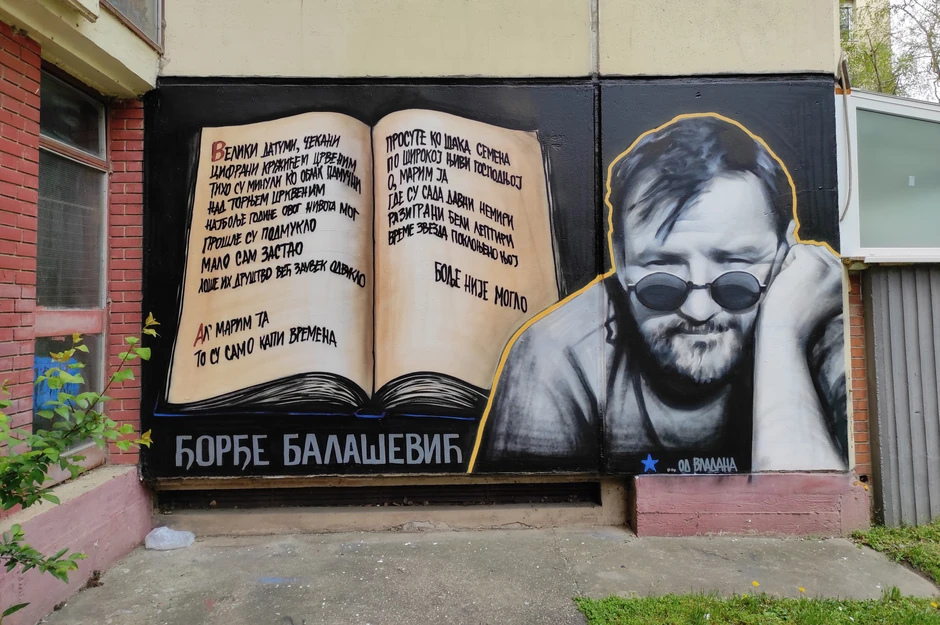 ВЕЛИКИ ДАТУМИ, ЧЕКАНИ
ЦИФРАНИ КРУЖИЋЕМ ЦРВЕНИМ
ТИХО СУ МИНУЛИ КО ОБЛАК ПАМУЧНИ
НАД ТОРЊЕМ ЦРКВЕНИМ
НАЈБОЉЕ ГОДИНЕ ОВОГ ЖИВОТА МОГ
ПРОШЛЕ СУ ПОДМУКЛО
МАЛО САМ ЗАСТАО
ЛОШЕ ИХ ДРУШТВО ВЕЋ ЗАУВЕК ОДВУКЛО
АЛ' МАРИМ ЈА
ТО СУ САМО КАПИ ВРЕМЕНА
ПРОСУТЕ КО ШАКА СЕМЕНА
ПО ШИРОКОЈ ЊИВИ ГОСПОДЊОЈ
О, МАРИМ ЈА
ГДЕ СУ САДА ДАВНИ НЕМИРИ
РАЗИГРАНИ БЕЛИ ЛЕПТИРИ
ВРЕМЕ ЗВЕЗДА ПОКЛОЊЕНО ЊОЈ
БОЉЕ НИЈЕ МОГЛО
ЂОРЂЕ БАЛАШЕВИЋ
... ОД ВЛАДАНА